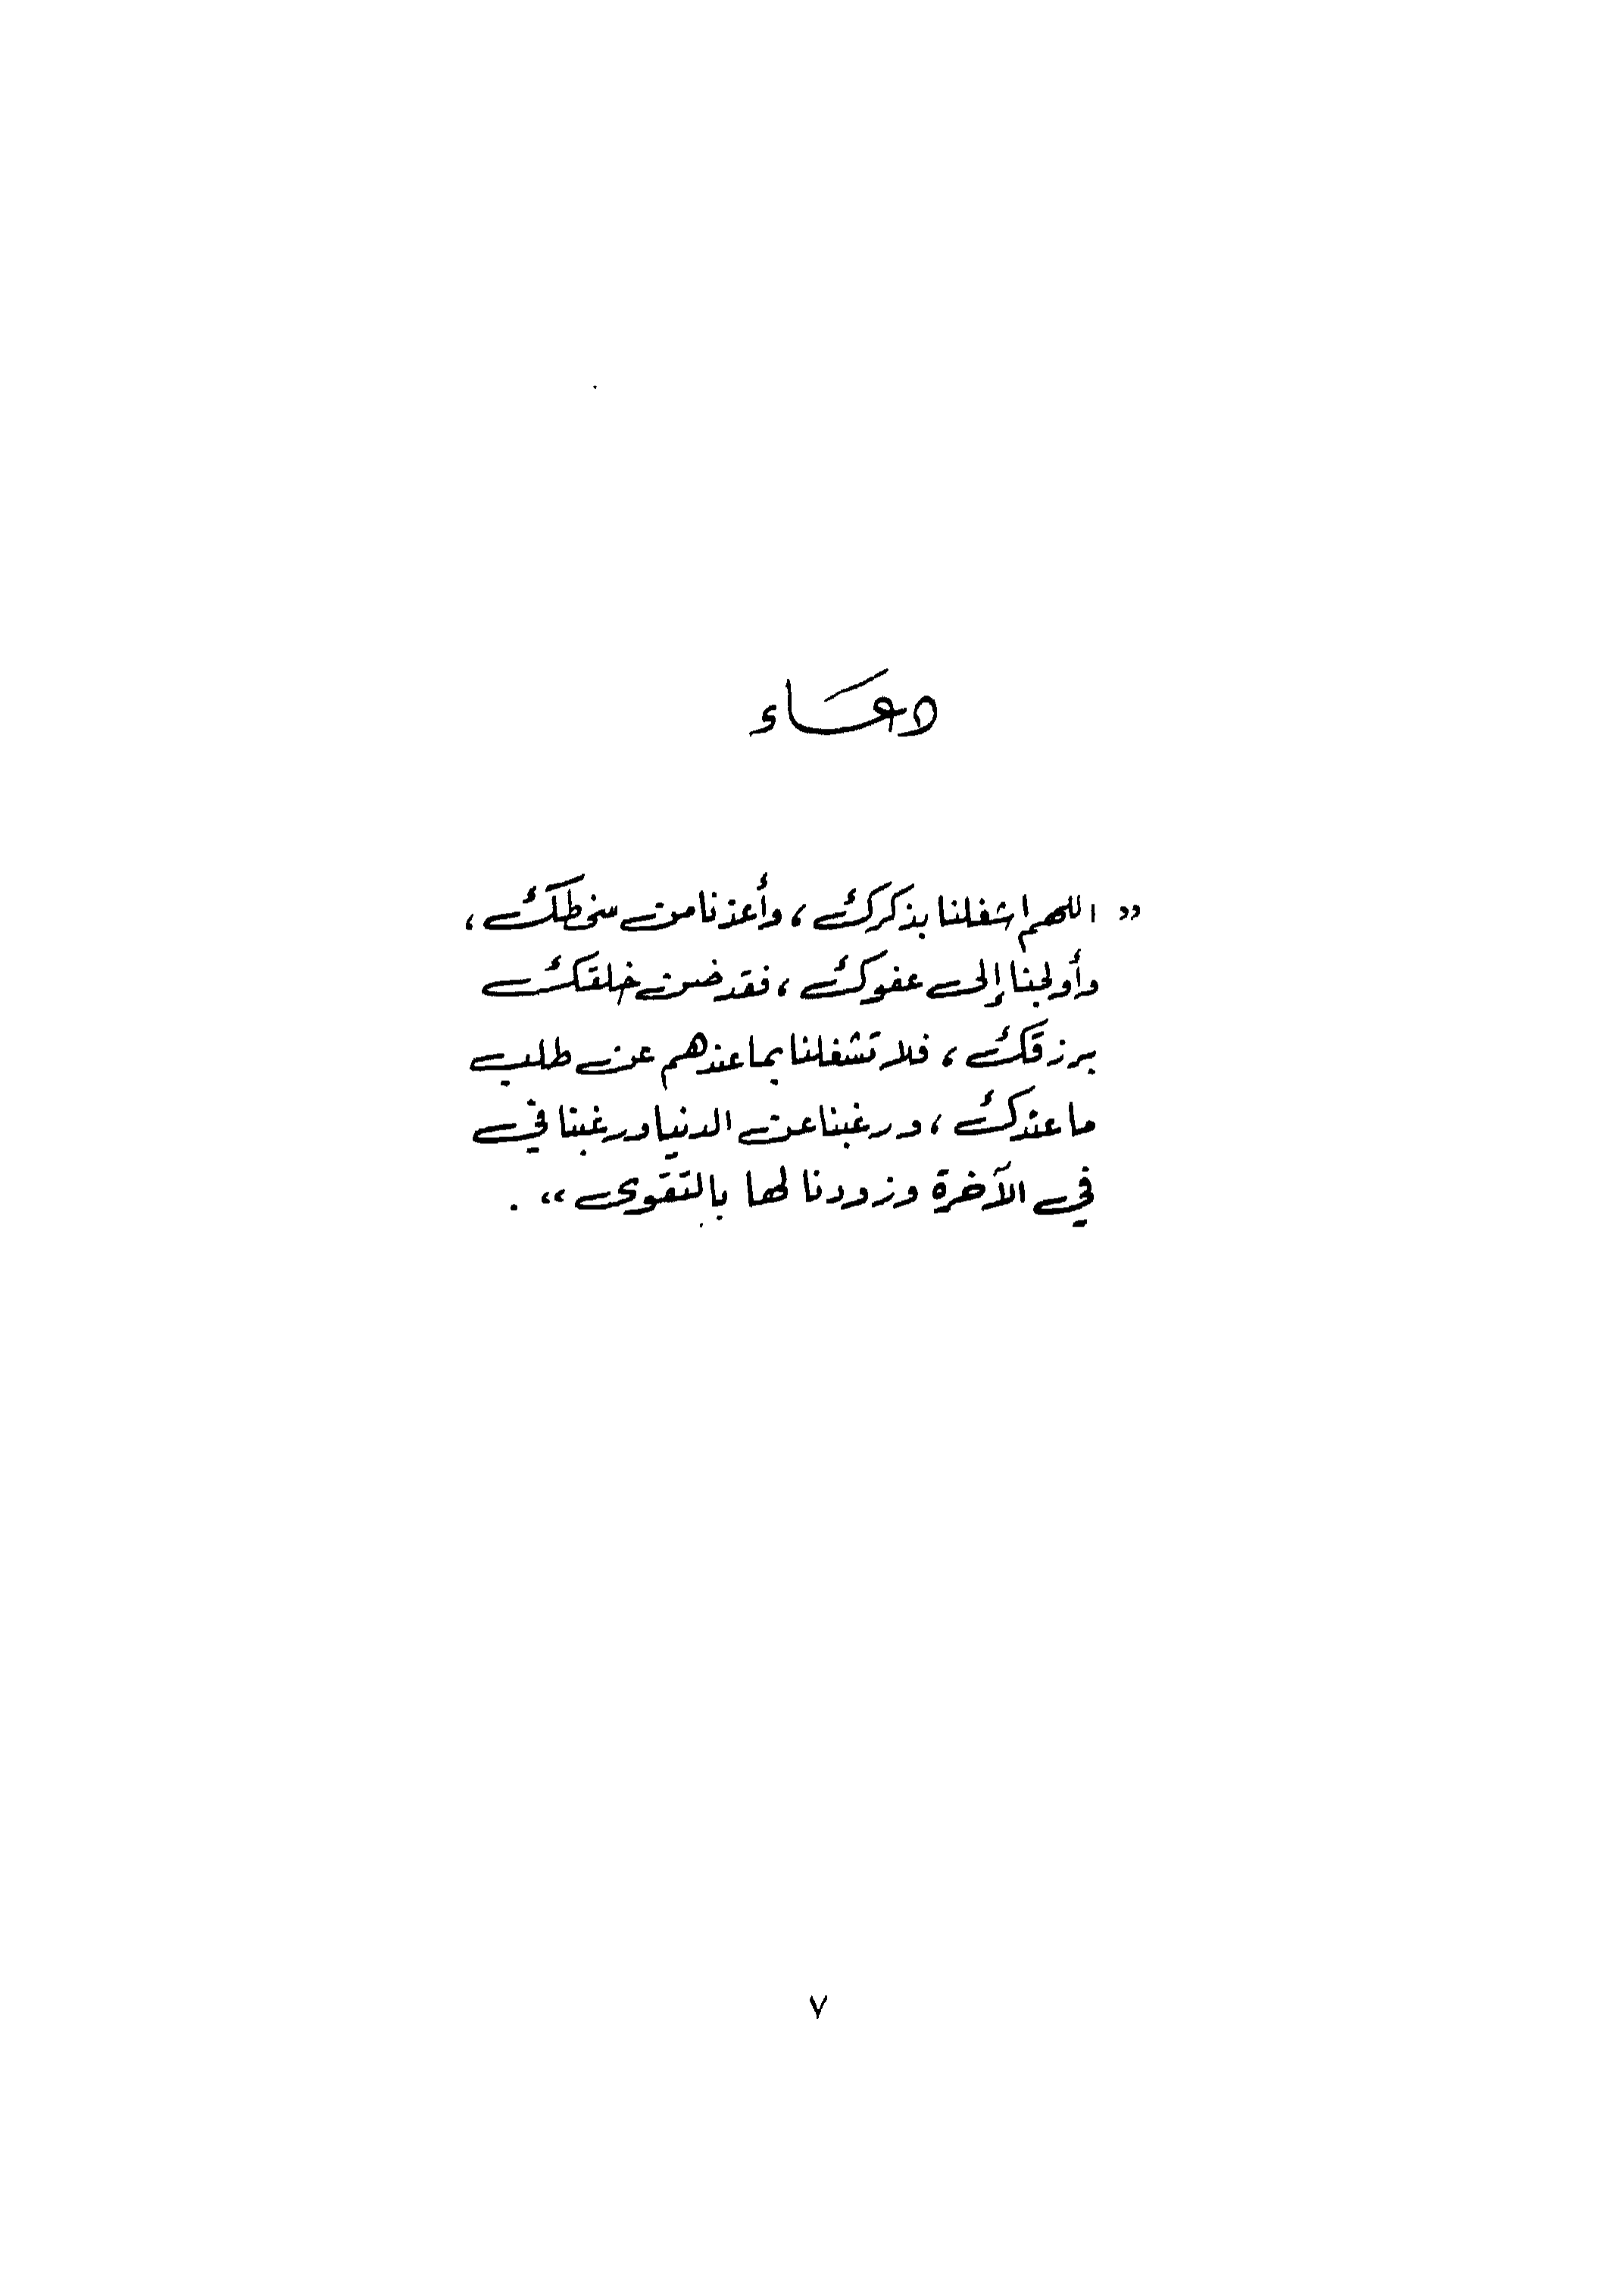 دعاء
« اللهم اشغلنا بذكرك ، وأعذنا من سخطك ،
وأولجنا إلى عفوك ، فقد ضن خلقك
برزقك ، فلا تشغلنا بما عندهم عن طلب
ما عندك ، ورغبنا عن الدنيا ورغبنا في
في الآخرة وزودنا لها بالتقوى » .
٧